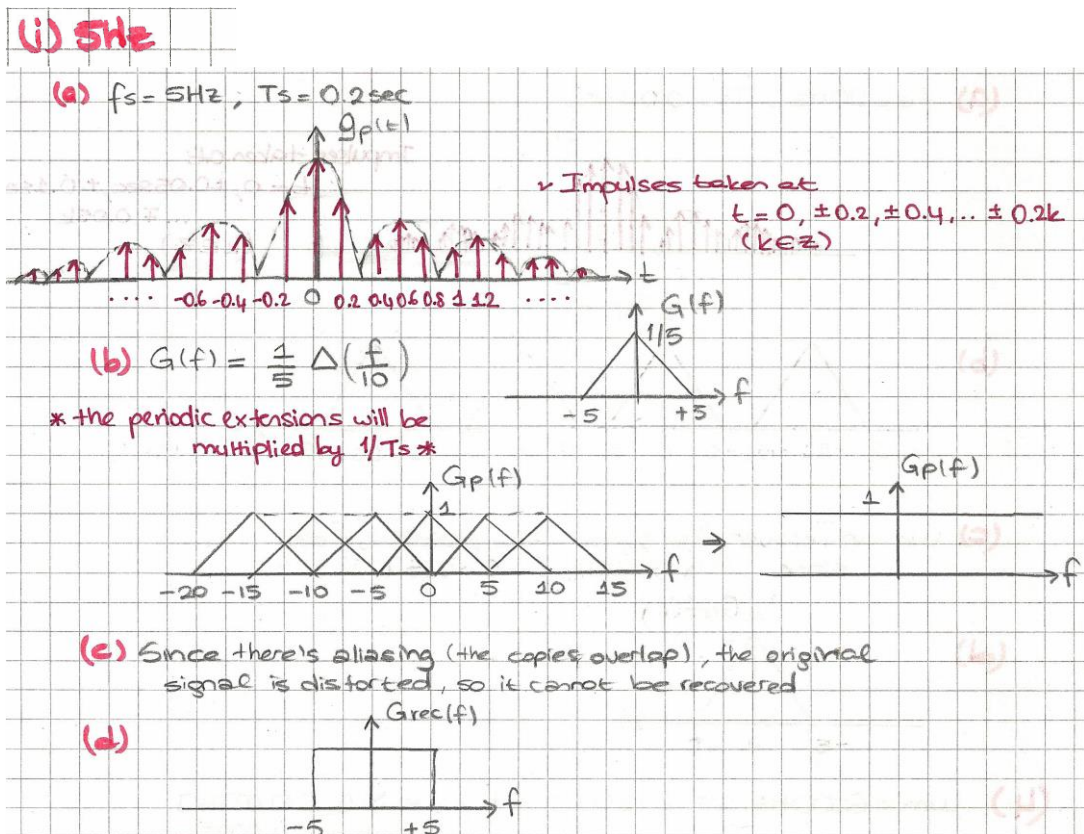 (i) 5Hz
(a) fs = 5Hz, Ts = 0.2sec
gp(t)
✓ Impulses taken at
t = 0, ±0.2, ±0.4, .. ±0.2k
(k∈Z)
t
.... -0.6 -0.4 -0.2 0 0.2 0.4 0.6 0.8 1 1.2 ....
G(f)
1/5
(b) G(f) = 1/5 Δ(f/10)
-5 +5 f
* the periodic extensions will be
multiplied by 1/Ts *
Gp(f)
1
-20 -15 -10 -5 0 5 10 15 f
⇒
Gp(f)
1
f
(c) Since there's aliasing (the copies overlap), the original
signal is distorted, so it cannot be recovered
(d)
Grec(f)
-5 +5 f